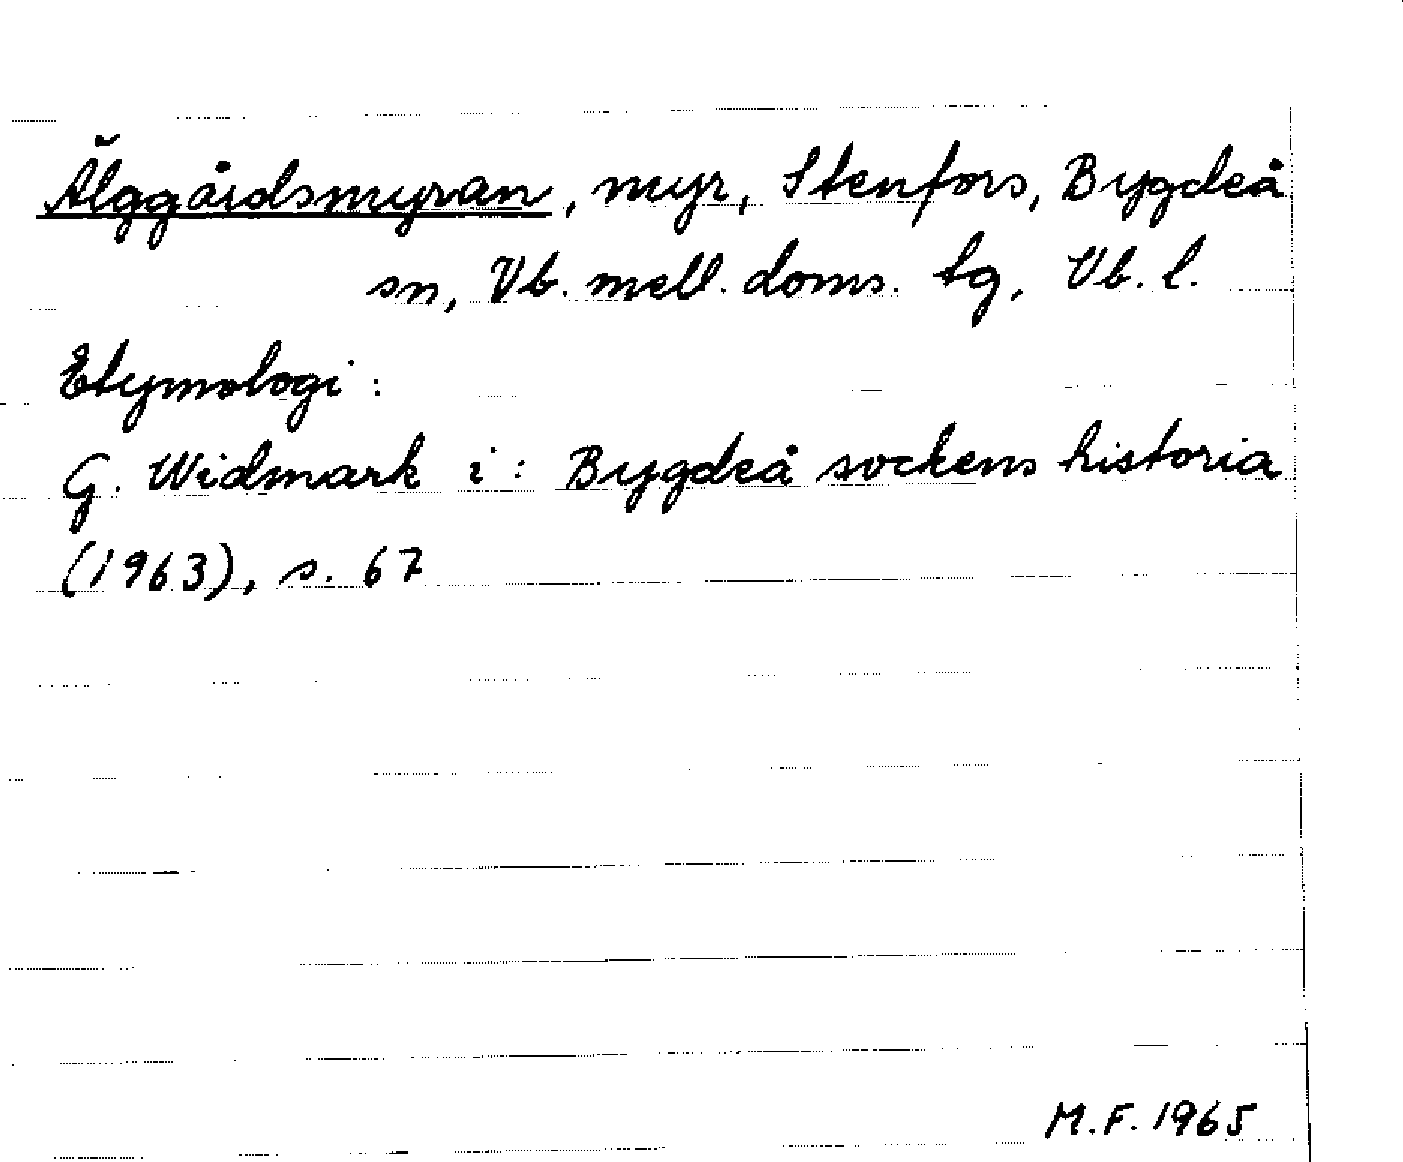 Älggårdsmyran, myr, Stenfors, Bygdeå
sn, Vb. mell. doms. tg, Vb. l.
Etymologi:
G. Widmark i: Bygdeå sockens historia
(1963), s. 67
M.F. 1965